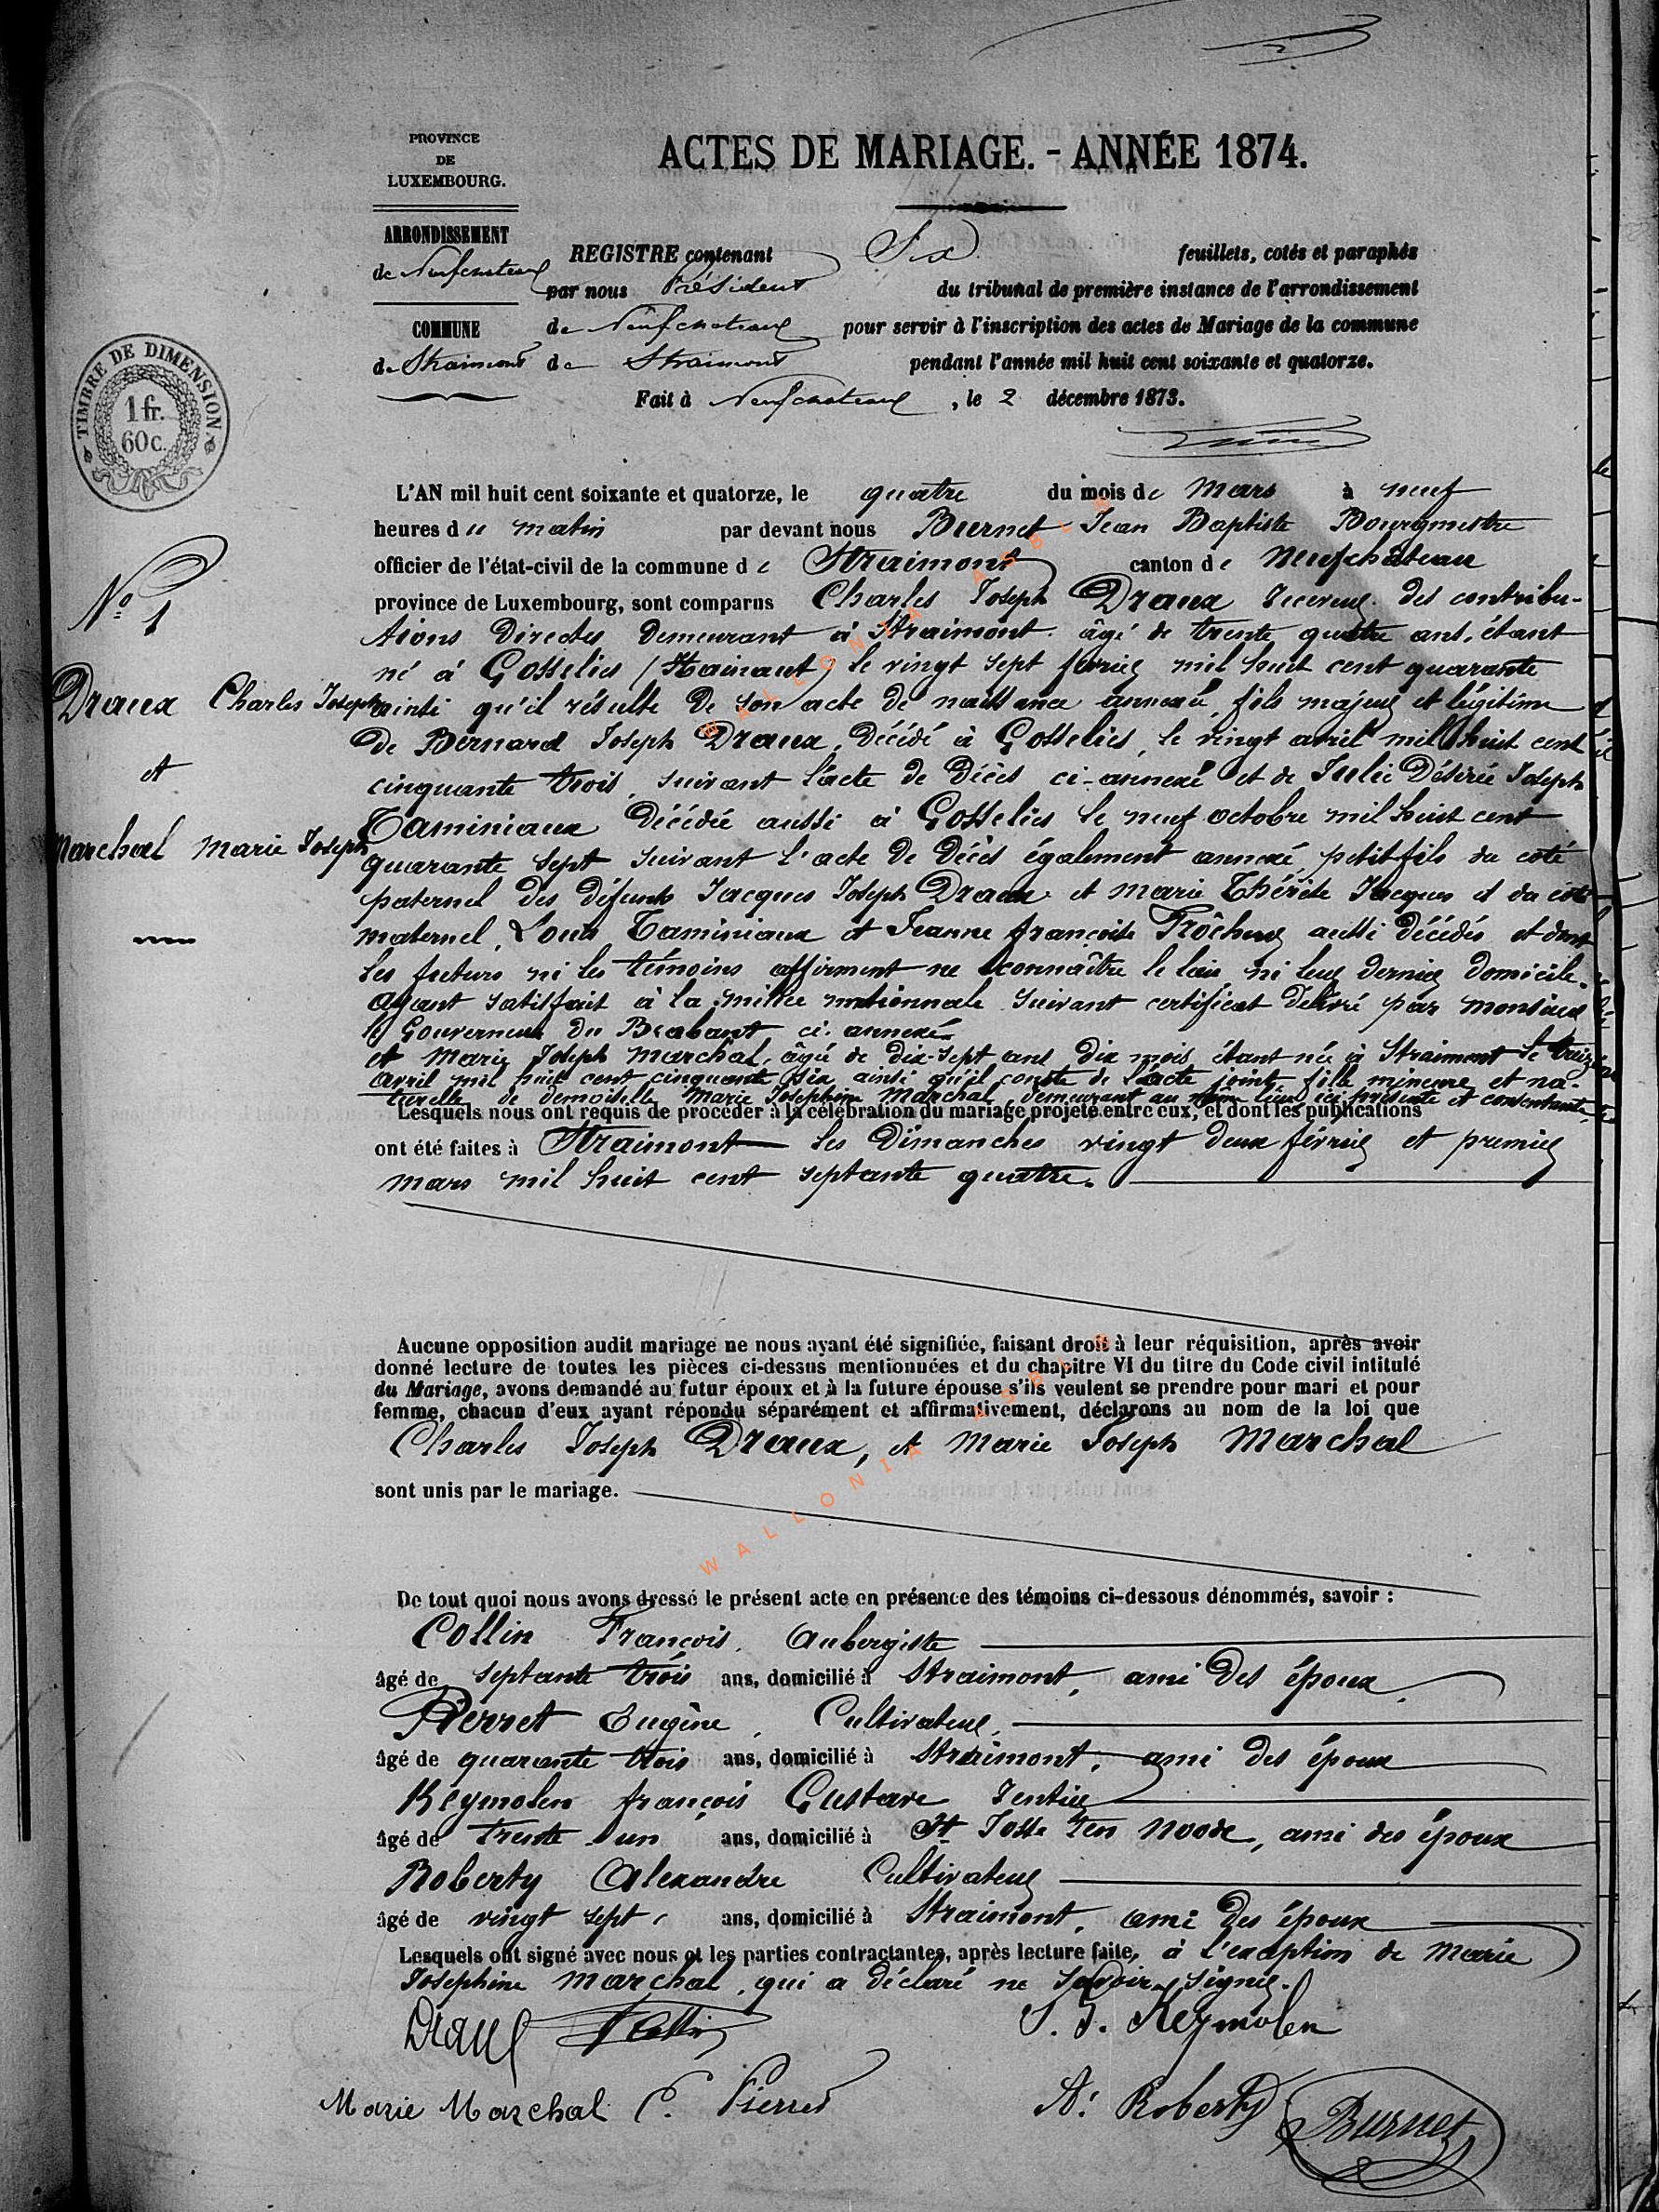 PROVINCE
DE
LUXEMBOURG.
ACTES DE MARIAGE. - ANNÉE 1874.
ARRONDISSEMENT
de Neufchateau
REGISTRE contenant Six feuillets, cotés et paraphés
par nous Président du tribunal de première instance de l'arrondissement
COMMUNE
de Straimont
de Neufchateau pour servir à l'inscription des actes de Mariage de la commune
de Straimont pendant l'année mil huit cent soixante et quatorze.
Fait à Neufchateau, le 2 décembre 1873.
TIMBRE DE DIMENSION
1 fr.
60 c.
L'AN mil huit cent soixante et quatorze, le quatre du mois de Mars à neuf
heures du matin par devant nous Burnet Jean Baptiste Bourgmestre
officier de l'état-civil de la commune de Straimont canton de Neufchâteau
N° 1
province de Luxembourg, sont comparus Charles Joseph Draux receveur des contribu-
tions directes demeurant à Straimont âgé de trente quatre ans, étant
né à Gosselies (Hainaut) le vingt sept février mil huit cent quarante
Draux Charles Joseph
et
Marchal Marie Joseph
ainsi qu'il résulte de son acte de naissance annexé, fils majeur et légitime
de Bernard Joseph Draux, décédé à Gosselies, le vingt avril mil huit cent
cinquante trois, suivant l'acte de décès ci-annexé et de Julie Désirée Joseph
Taminiaux décédée aussi à Gosselies le neuf octobre mil huit cent
quarante sept suivant l'acte de décès également annexé, petit fils du coté
paternel des défunts Jacques Joseph Draux et marie Thérèse Jacques et du coté
maternel, Louis Taminiaux et Jeanne françoise aussi décédés et dont
les futurs ni les témoins affirment ne connaître le lieu ni leur dernier domicile.
ayant satisfait à la milice nationnale suivant certificat délivré par monsieur
le Gouverneur du Brabant ci annexé
et Marie Joseph Marchal, âgée de dix-sept ans dix mois étant née à Straimont le treize
avril mil huit cent cinquante six ainsi qu'il conste de l'acte joint, fille mineure et na-
turelle de demoiselle Marie Josephine Marchal, demeurant au même lieu ici présente et consentante,
Lesquels nous ont requis de procéder à la célébration du mariage projeté entre eux, et dont les publications
ont été faites à Straimont les Dimanches vingt deux février et premier
mars mil huit cent septante quatre.
Aucune opposition audit mariage ne nous ayant été signifiée, faisant droit à leur réquisition, après avoir
donné lecture de toutes les pièces ci-dessus mentionnées et du chapitre VI du titre du Code civil intitulé
du Mariage, avons demandé au futur époux et à la future épouse s'ils veulent se prendre pour mari et pour
femme, chacun d'eux ayant répondu séparément et affirmativement, déclarons au nom de la loi que
Charles Joseph Draux, et Marie Joseph Marchal
sont unis par le mariage.
WALLONIA ASBL
De tout quoi nous avons dressé le présent acte en présence des témoins ci-dessous dénommés, savoir :
Collin François, Aubergiste
âgé de septante trois ans, domicilié à Straimont, ami des époux.
Pierret Eugène, Cultivateur,
âgé de quarante trois ans, domicilié à Straimont, ami des époux
Keymolen françois Gustave rentier
âgé de trente un ans, domicilié à St Josse ten Noode, ami des époux
Roberty Alexandre Cultivateur
âgé de vingt sept ans, domicilié à Straimont, ami des époux
Lesquels ont signé avec nous et les parties contractantes, après lecture faite, à l'exception de Marie
Josephine Marchal, qui a déclaré ne savoir signer.
Draux F Collin J. G. Keymolen
Marie Marchal E. Pierret A. Roberty Burnet